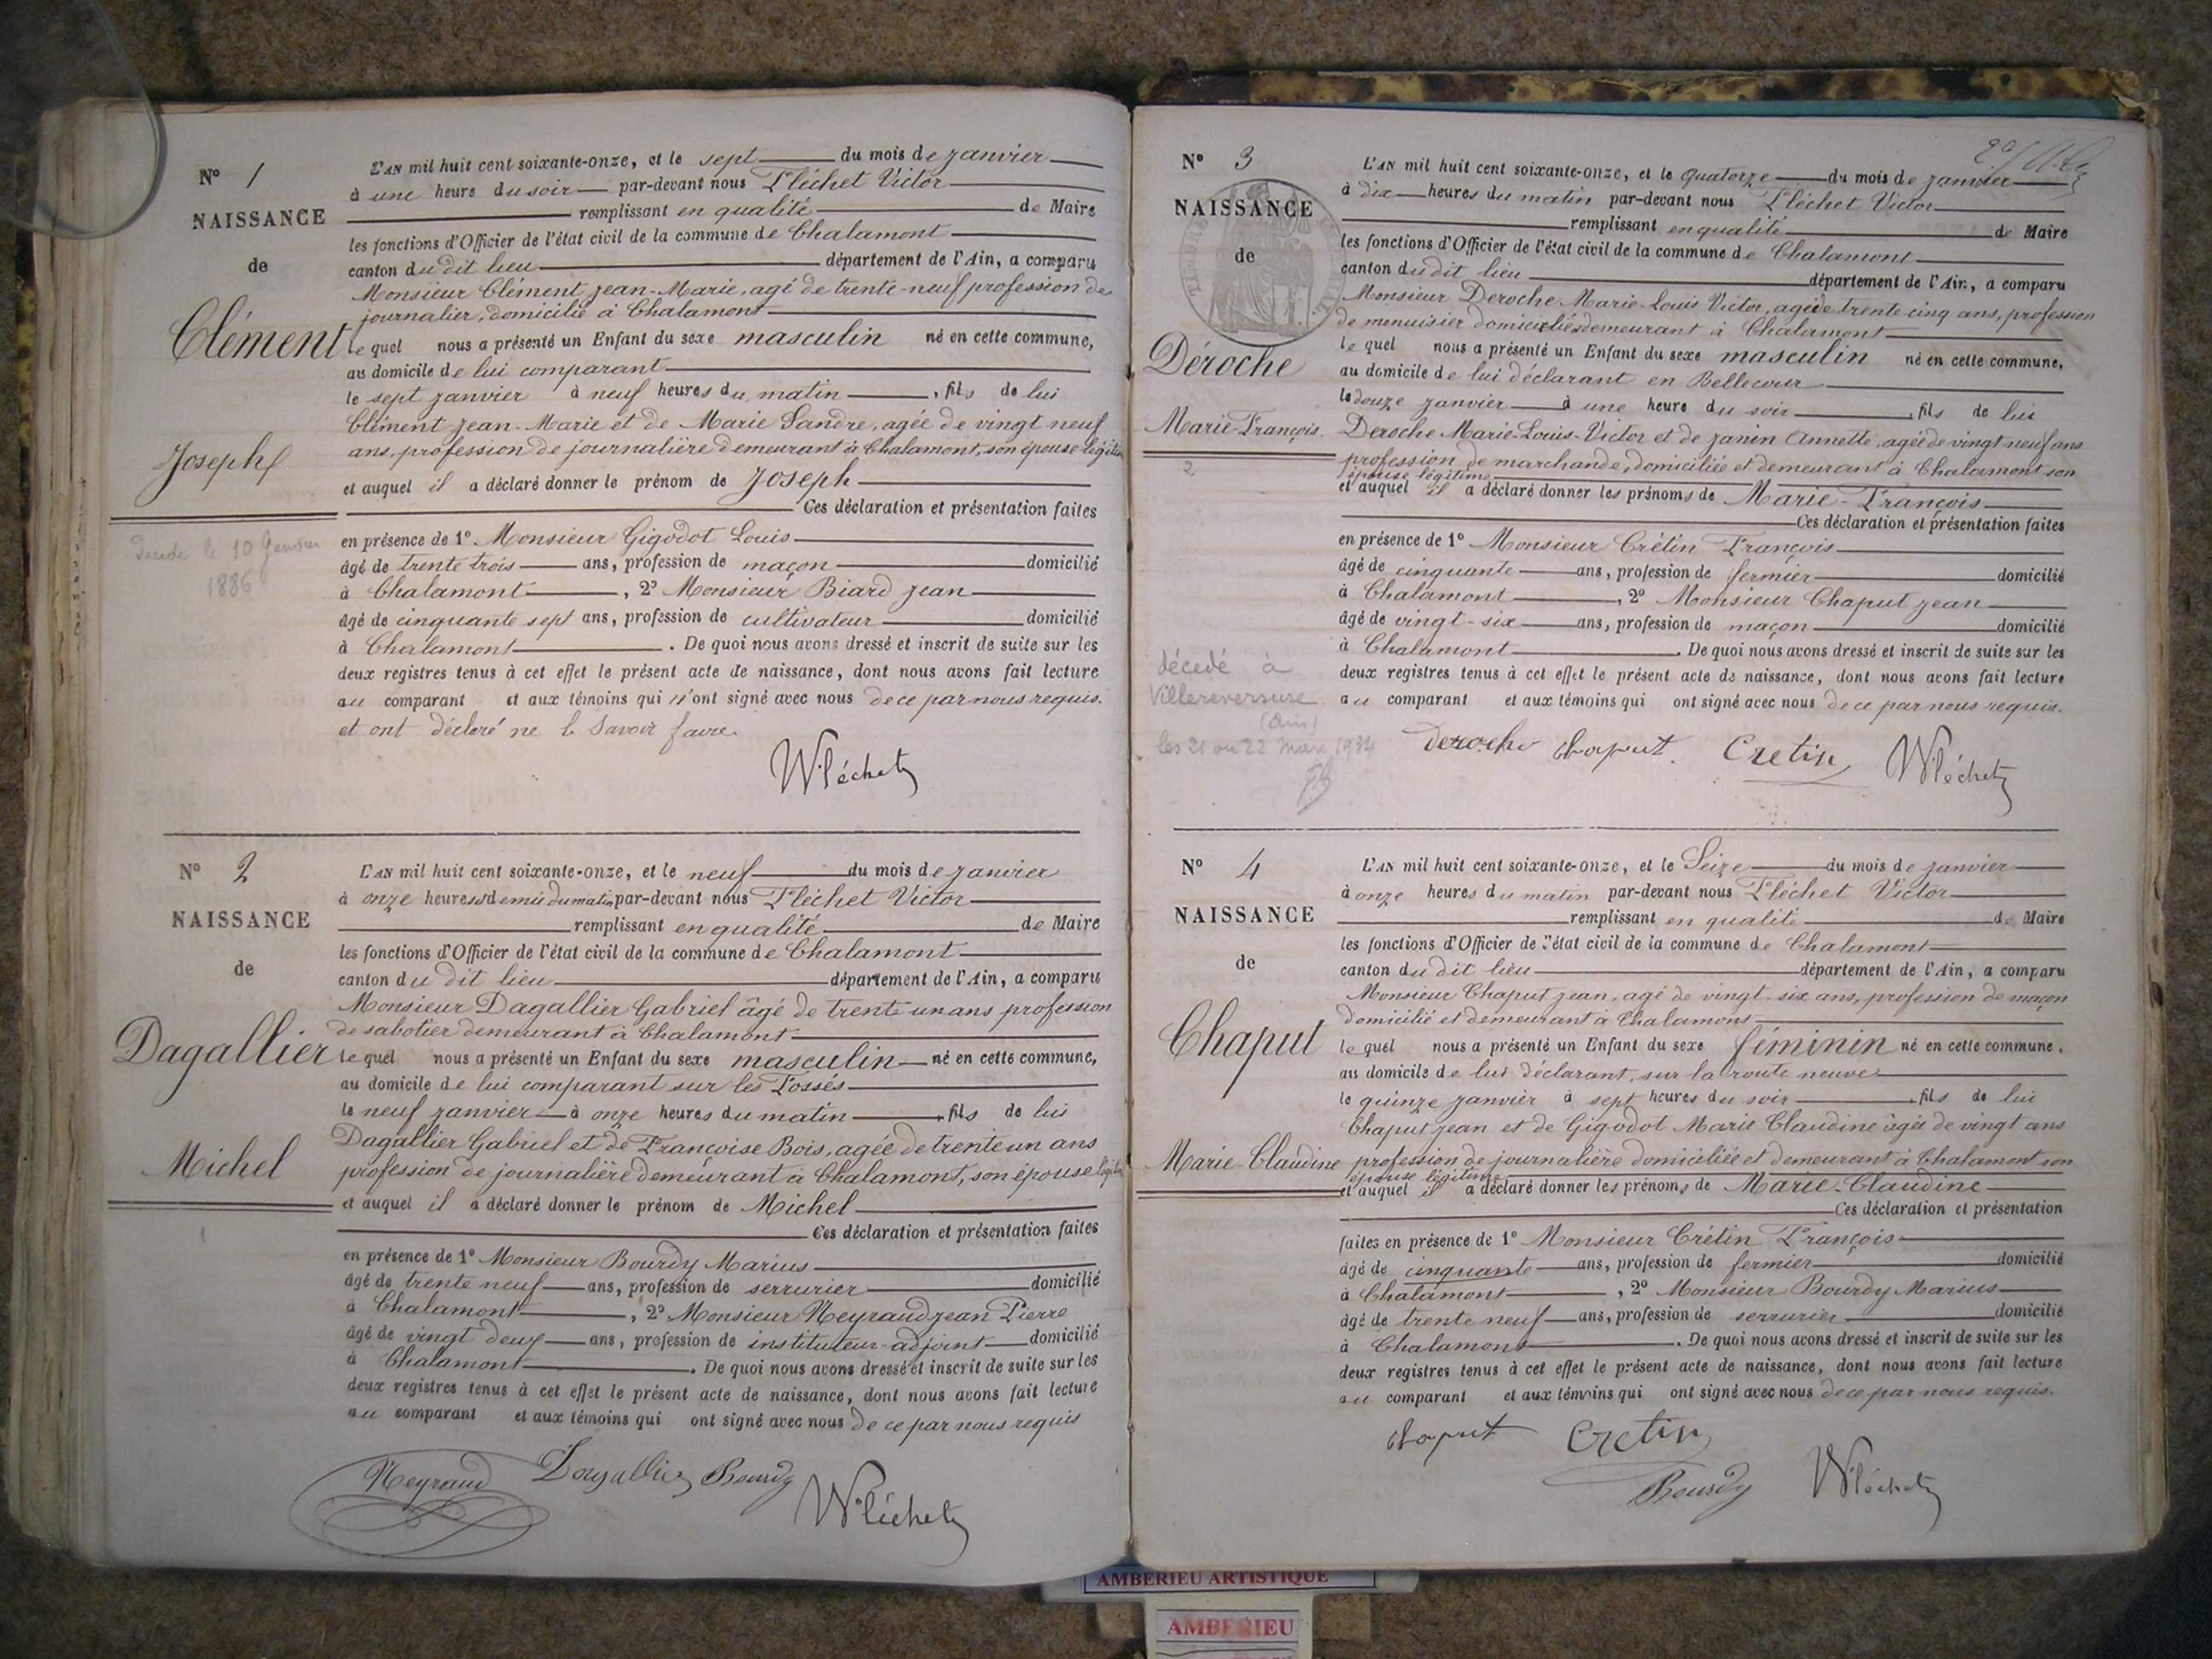 N° 1
NAISSANCE
de
Clément
Joseph
Décédé le 10 Janvier
1886
L'AN mil huit cent soixante-onze, et le sept du mois de janvier
à une heure du soir par-devant nous Fléchet Victor
remplissant en qualité de Maire
les fonctions d'Officier de l'état civil de la commune de Chalamont
canton du dit lieu département de l'Ain, a comparu
Monsieur Clément Jean-Marie, agé de trente-neuf profession de
journalier, domicilié à Chalamont
le quel nous a présenté un Enfant du sexe masculin né en cette commune,
au domicile de lui comparant
le sept janvier à neuf heures du matin, fils de lui
Clément Jean-Marie et de Marie Sandre, agée de vingt neuf
ans, profession de journalière demeurant à Chalamont, son épouse légitime
et auquel il a déclaré donner le prénom de Joseph
Ces déclaration et présentation faites
en présence de 1° Monsieur Gigodot Louis
âgé de trente trois ans, profession de maçon domicilié
à Chalamont, 2° Monsieur Biard Jean
âgé de cinquante sept ans, profession de cultivateur domicilié
à Chalamont. De quoi nous avons dressé et inscrit de suite sur les
deux registres tenus à cet effet le présent acte de naissance, dont nous avons fait lecture
au comparant et aux témoins qui n'ont signé avec nous de ce par nous requis.
et ont déclaré ne le savoir faire
V. Fléchet
N° 2
NAISSANCE
de
Dagallier
Michel
1
L'AN mil huit cent soixante-onze, et le neuf du mois de janvier
à onze heures et demie du matin par-devant nous Fléchet Victor
remplissant en qualité de Maire
les fonctions d'Officier de l'état civil de la commune de Chalamont
canton du dit lieu département de l'Ain, a comparu
Monsieur Dagallier Gabriel âgé de trente-un ans profession
de sabotier demeurant à Chalamont
le quel nous a présenté un Enfant du sexe masculin né en cette commune,
au domicile de lui comparant sur les Fossés
le neuf janvier à onze heures du matin, fils de lui
Dagallier Gabriel et de Françoise Bois, agée de trente un ans
profession de journalière demeurant à Chalamont, son épouse légitime
et auquel il a déclaré donner le prénom de Michel
Ces déclaration et présentation faites
en présence de 1° Monsieur Bourdy Marius
âgé de trente neuf ans, profession de serrurier domicilié
à Chalamont, 2° Monsieur Neyraud Jean Pierre
âgé de vingt deux ans, profession de instituteur-adjoint domicilié
à Chalamont. De quoi nous avons dressé et inscrit de suite sur les
deux registres tenus à cet effet le présent acte de naissance, dont nous avons fait lecture
au comparant et aux témoins qui ont signé avec nous de ce par nous requis
Neyraud Dagallier Bourdy V. Fléchet
N° 3
NAISSANCE
de
Déroche
Marie-François
2
décédé à
Villereversure
(Ain)
les 21 ou 22 mars 1934
L'AN mil huit cent soixante-onze, et le quatorze du mois de janvier
à dix heures du matin par-devant nous Fléchet Victor
remplissant en qualité de Maire
les fonctions d'Officier de l'état civil de la commune de Chalamont
canton du dit lieu département de l'Ain, a comparu
Monsieur Deroche Marie-Louis Victor, agé de trente cinq ans, profession
de menuisier domicilié demeurant à Chalamont
le quel nous a présenté un Enfant du sexe masculin né en cette commune,
au domicile de lui déclarant en Bellecour
le douze janvier à une heure du soir, fils de lui
Deroche Marie-Louis-Victor et de Janin Annette, agée de vingt neuf ans
profession de marchande, domiciliée et demeurant à Chalamont son
épouse légitime
et auquel il a déclaré donner les prénoms de Marie-François
Ces déclaration et présentation faites
en présence de 1° Monsieur Crétin François
âgé de cinquante ans, profession de fermier domicilié
à Chalamont, 2° Monsieur Chaput Jean
âgé de vingt-six ans, profession de maçon domicilié
à Chalamont. De quoi nous avons dressé et inscrit de suite sur les
deux registres tenus à cet effet le présent acte de naissance, dont nous avons fait lecture
au comparant et aux témoins qui ont signé avec nous de ce par nous requis.
deroche chaput. Cretin V. Fléchet
N° 4
NAISSANCE
de
Chaput
Marie-Claudine
L'AN mil huit cent soixante-onze, et le Seize du mois de janvier
à onze heures du matin par-devant nous Fléchet Victor
remplissant en qualité de Maire
les fonctions d'Officier de l'état civil de la commune de Chalamont
canton du dit lieu département de l'Ain, a comparu
Monsieur Chaput Jean, agé de vingt-six ans, profession de maçon
domicilié et demeurant à Chalamont
le quel nous a présenté un Enfant du sexe féminin né en cette commune,
au domicile de lui déclarant, sur la route neuve
le quinze janvier à sept heures du soir, fils de lui
Chaput Jean et de Gigodot Marie Claudine âgée de vingt ans
profession de journalière domiciliée et demeurant à Chalamont son
épouse légitime
et auquel il a déclaré donner les prénoms de Marie-Claudine
Ces déclaration et présentation
faites en présence de 1° Monsieur Crétin François
âgé de cinquante ans, profession de fermier domicilié
à Chalamont, 2° Monsieur Bourdy Marius
âgé de trente neuf ans, profession de serrurier domicilié
à Chalamont. De quoi nous avons dressé et inscrit de suite sur les
deux registres tenus à cet effet le présent acte de naissance, dont nous avons fait lecture
au comparant et aux témoins qui ont signé avec nous de ce par nous requis.
chaput Cretin
Bourdy V. Fléchet
AMBERIEU ARTISTIQUE
AMBERIEU